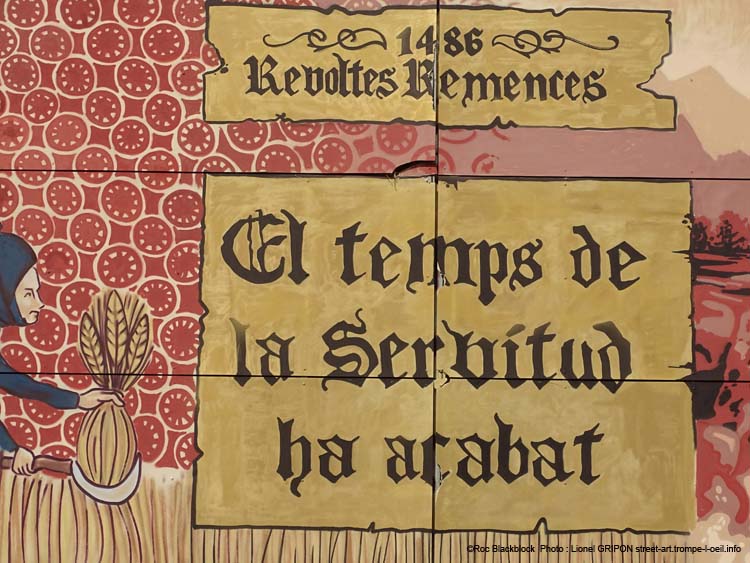 1486
Revoltes Remences
El temps de
la Servitud
ha acabat
©Roc Blackblock Photo : Lionel GRIPON street-art.trompe-l-oeil.info